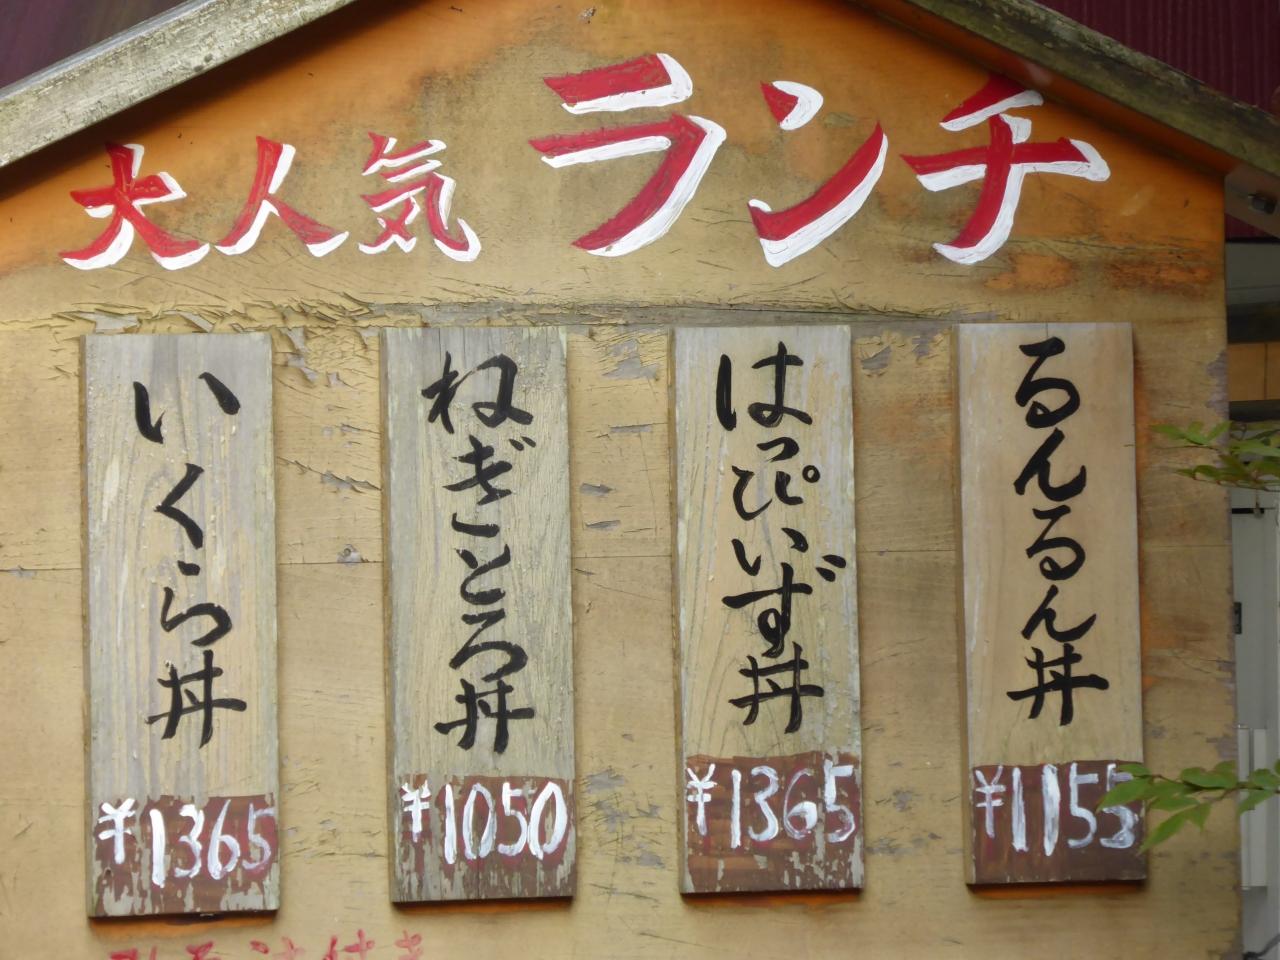 大人気ランチ
るんるん丼
¥1155
はっぴいず丼
¥1365
ねぎとろ丼
¥1050
いくら丼
¥1365